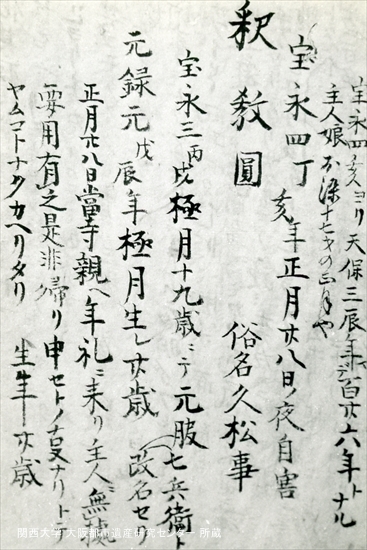 宝永四亥ヨリ天保三辰ノ年マデ百廿六年トナル
主人娘お染十七才の正月や
宝永四丁亥年正月廿八日ノ夜自害
釈教圓 俗名久松事
宝永三丙戌極月十九歳ニテ元服七兵衛ト改名セ
元録元戊辰年極月生レ廿歳
正月廿八日當寺親ヘ年礼ニ来リ主人無拠
要用有之是非帰リ申セトノ事ナリトテ
ヤムコトナクカヘリタリ 生年廿歳
関西大学 大阪都市遺産研究センター 所蔵